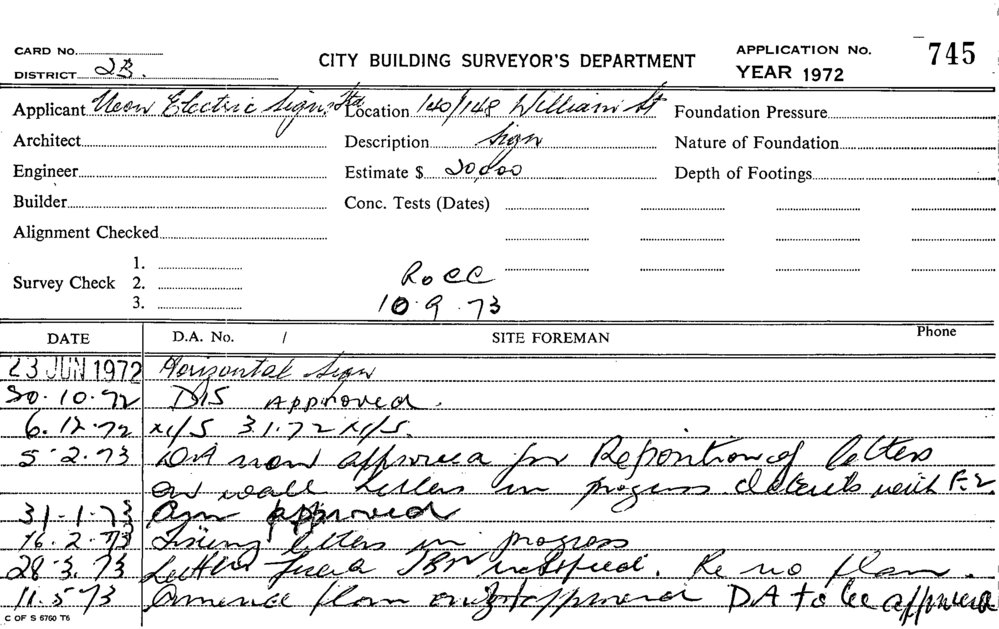 CARD No.
DISTRICT 2B.
CITY BUILDING SURVEYOR'S DEPARTMENT
APPLICATION No. 745
YEAR 1972
Applicant Neon Electric Signs Location 140/148 William St Foundation Pressure
Architect Description Sign Nature of Foundation
Engineer Estimate $ 20,000 Depth of Footings
Builder Conc. Tests (Dates)
Alignment Checked
Survey Check 1.
2.
3.
10.9.73
DATE D.A. No. / SITE FOREMAN Phone
23 JUN 1972 Horizontal Sign
30.10.72 DIS APPROVED.
6.12.72 31.72
5.2.73 DA now approved for Reposition of letters
on wall Letters in progress. details with
31-1-73 Am approved
16.2.73 Fixing letters in progress
28.3.73 Letters fixed notified. Re no plan.
11.5.73 Amended plan approved DA to be approved
C OF S 6760 T6